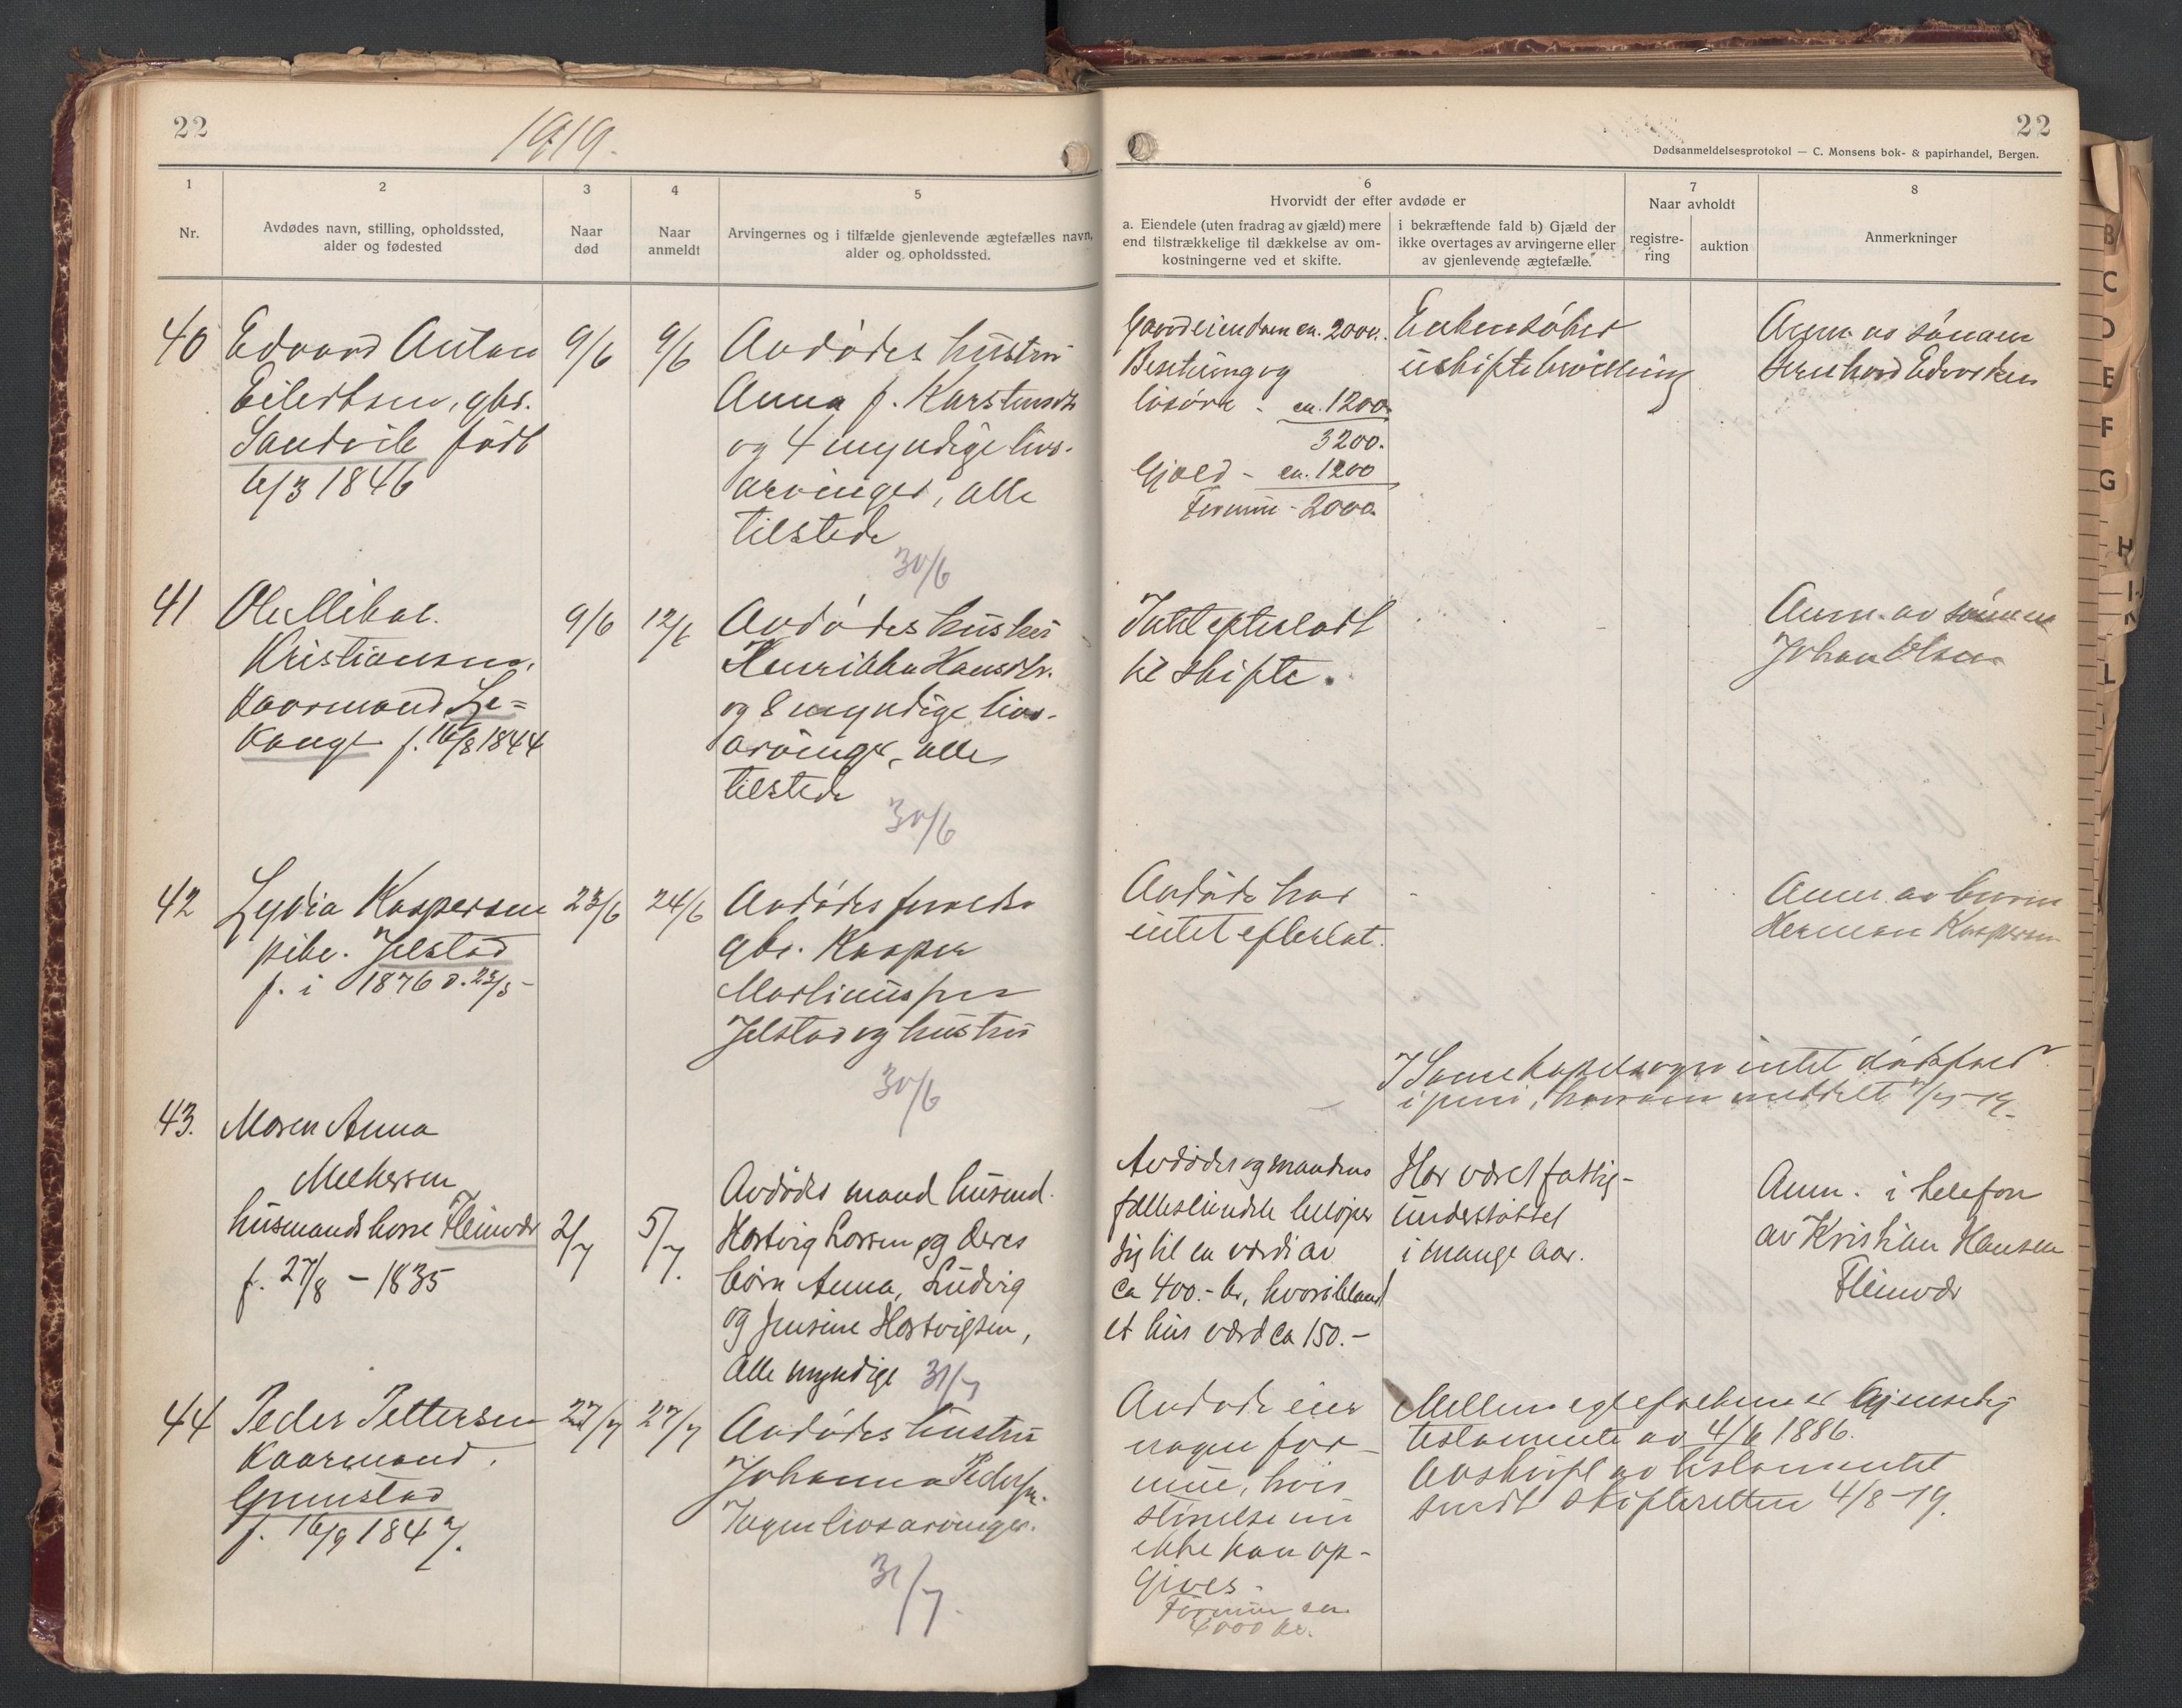 22
1919.
1
2
3
4
5
Nr.
Avdødes navn, stilling, opholdssted,
alder og fødested
Naar
død
Naar
anmeldt
Arvingernes og i tilfælde gjenlevende ægtefælles navn,
alder og opholdssted.
40
Edvard Anton
Eilertsen, gbr.
Sandvik født
6/3 1846
9/6
9/6
Avdødes hustru
Anna f. Karstensdtr
og 4 myndige livs-
arvinger, alle
tilstede
30/6
41
Ole Mikal
Kristiansen,
Kaarmand Le=
Kange f. 16/8 1844
9/6
12/6
Avdødes hustru
Henrikka Hansdtr.
og 8 myndige livs-
arvinger, alle
tilstede
30/6
42
Lydia Kaspersen
pike. Jelstad
f. i 1876 d. 23/5-
23/6
24/6
Avdødes forældre
gbr. Kasper
Martinussen
Jelstad og hustru
30/6
43.
Maren Anna
husmandskone Fleinvær
f. 27/8 - 1835
2/7
5/7.
Avdødes mand husmd.
Hartvig Larsen og deres
børn Anna, Ludvig
og Jensine Hartvigsen,
alle myndige 31/7
44
Peder Pettersen
Kaarmand,
Grimstad
f. 16/9 1847.
27/7
27/7
Avdødes hustru
Johanna Pedersen.
Ingen livsarvinger.
31/7.
22
Dødsanmeldelsesprotokol — C. Monsens bok- & papirhandel, Bergen.
6
Hvorvidt der efter avdøde er
a. Eiendele (uten fradrag av gjæld) mere
end tilstrækkelige til dækkelse av om-
kostningerne ved et skifte.
i bekræftende fald b) Gjæld der
ikke overtages av arvingerne eller
av gjenlevende ægtefælle.
7
Naar avholdt
registre-
ring
auktion
8
Anmerkninger
Gaardeiendom ca. 2000.
Besætning og
løsøre - ca. 1200.
3200.
Gjæld - ca. 1200
Formue - 2000.
Enken søker
uskiftebevilling
Anm. av sønnen
Bernhard Edvardsen
Intet efterladt
til skifte.
Anm. av sønnen
Johan Olsen
Avdøde har
intet efterlat.
Anm. av broren
Herman Kaspersen
I intet dødsfald
i juni, herom meddelt 7/7-19.
Avdødes og mandens
fælleseiendele beløper
sig til en værdi av
ca 400.- kr, hvoriblandt
et hus værd ca 150.-
Har været fattig-
understøttet
i mange aar.
Anm. i telefon
av Kristian Hansen
Fleinvær
Avdøde eier
nogen for-
mue, hvis
størrelse nu
ikke kan op-
gives.
Formue ca.
4000 kr.
Mellem egtefælkene er gjensidig
testamente av 4/6 1886.
Avskrift av testamentet
sendt skifteretten 4/8-19.
B
C
D
E
F
G
H
I-J
K
L